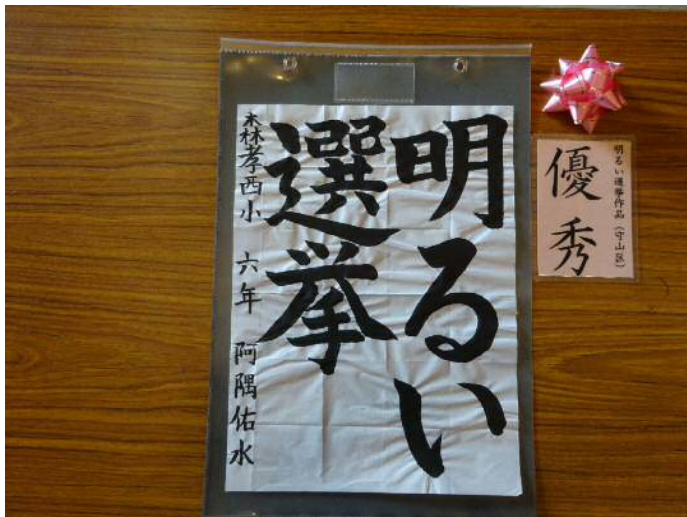 明るい
選挙
森孝西小 六年 阿隅佑水
明るい選挙作品（守山区）
優秀